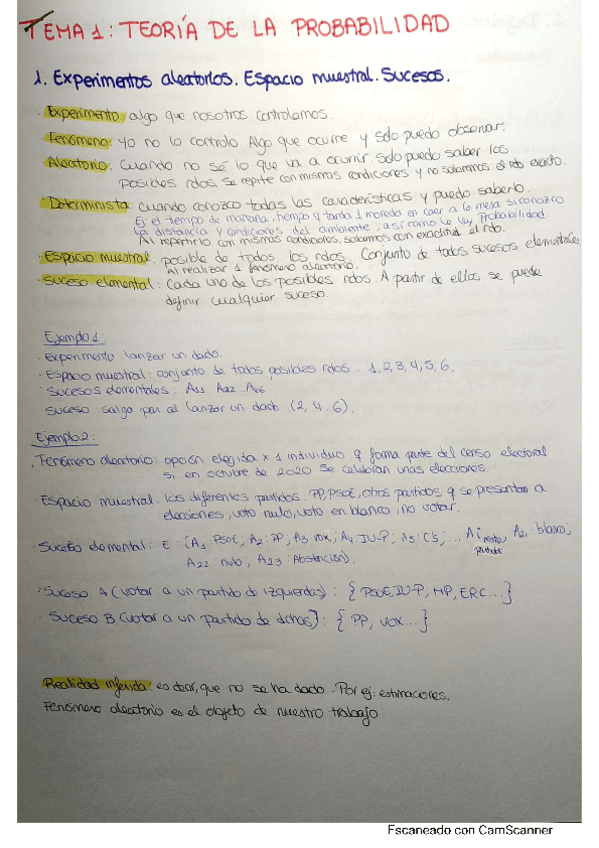 TEMA 1: TEORÍA DE LA PROBABILIDAD
1. Experimentos aleatorios. Espacio muestral. Sucesos.
· Experimento: algo que nosotros controlamos.
Fenómeno: yo no lo controlo Algo que ocurre y solo puedo observar.
Aleatorio: Cuando no sé lo que va a ocurrir. Solo puedo saber los
posibles rdos. Se repite con mismas condiciones y no sabremos el rdo exacto.
Determinista: cuando conozco todas las características y puedo saberlo.
Ej: el tiempo de mañana, tiempo q tarda 1 moneda en caer a la mesa si conozco
la distancia y condiciones del ambiente, así como la ley Probabilidad
Al repetirlo con mismas condiciones, sabemos con exactitud el rdo.
· Espacio muestral: posible de todos los rdos. Conjunto de todos sucesos elementales.
Al realizar 1 fenómeno aleatorio.
· Suceso elemental: Cada uno de los posibles rdos. A partir de ellos se puede
definir cualquier suceso.
Ejemplo 1:
· Experimento lanzar un dado.
· Espacio muestral: conjunto de todos posibles rdos. 1,2,3,4,5,6.
· Sucesos elementales:
Suceso salga par al lanzar un dado (2, 4, 6).
Ejemplo 2:
· Fenómeno aleatorio: opción elegida x 1 individuo q forma parte del censo electoral
si en octubre de 2020 se celebran unas elecciones.
· Espacio muestral: los diferentes partidos. PP, PSOE, otros partidos q se presentan a
elecciones, voto nulo, voto en blanco, no votar.
· Suceso elemental: E: {A1 PSOE, A2: PP, A3 VOX, A4 IU-P, A5: C's; ... Ai resto partidos A21 blanco;
A22 nulo, A23: Abstención}.
· Suceso A (votar a un partido de izquierdas): { PSOE, IU-P, MP, ERC...}
· Suceso B (votar a un partido de dchas): { PP, VOX...}
Realidad inferida: es decir, que no se ha dado. Por ej: estimaciones.
Fenómeno aleatorio es el objeto de nuestro trabajo
Escaneado con CamScanner